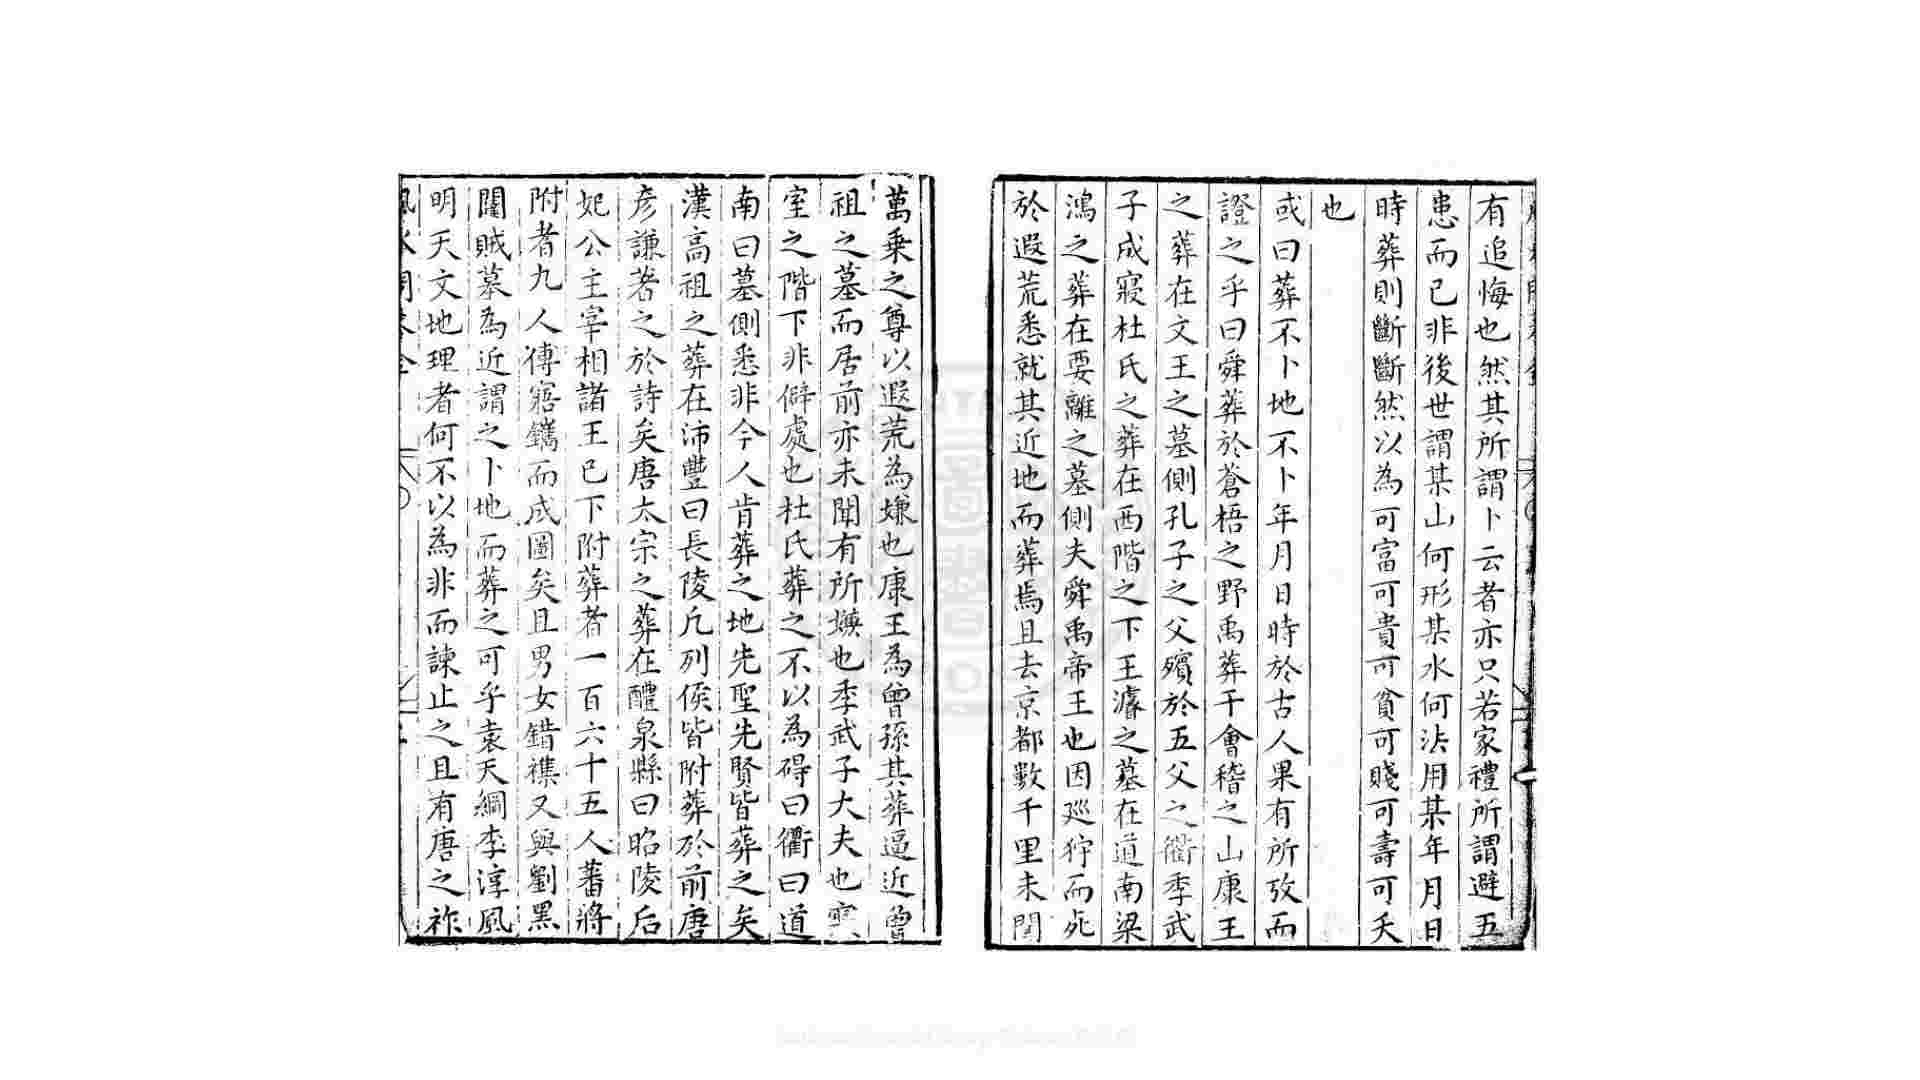 有追悔也然其所謂卜云者亦只若家禮所謂避五
患而已非後世謂某山何形某水何法用某年月日
時葬則斷斷然以為可富可貴可貧可賤可壽可夭
也
或曰葬不卜地不卜年月日時於古人果有所攷而
證之乎曰舜葬於蒼梧之野禹葬于會稽之山康王
之葬在文王之墓側孔子之父殯於五父之衢季武
子成寢杜氏之葬在西階之下王濬之墓在道南梁
鴻之葬在要離之墓側夫舜禹帝王也因巡狩而死
於遐荒悉就其近地而葬焉且去京都數千里未聞
萬乗之尊以遐荒為嫌也康王為曾孫其葬逼近曾
祖之墓而居前亦未聞有所嫌也季武子大夫也寢
室之階下非僻處也杜氏葬之不以為碍曰衢曰道
南曰墓側悉非今人肯葬之地先聖先賢皆葬之矣
漢高祖之葬在沛豐曰長陵凡列侯皆附葬於前唐
彦謙著之於詩矣唐太宗之葬在醴泉縣曰昭陵后
妃公主宰相諸王已下附葬者一百六十五人蕃將
附者九人傳寤鑴而成圖矣且男女錯襍又與劉黑
闥賊墓為近謂之卜地而葬之可乎袁天綱李淳風
明天文地理者何不以為非而諫止之且有唐之祚